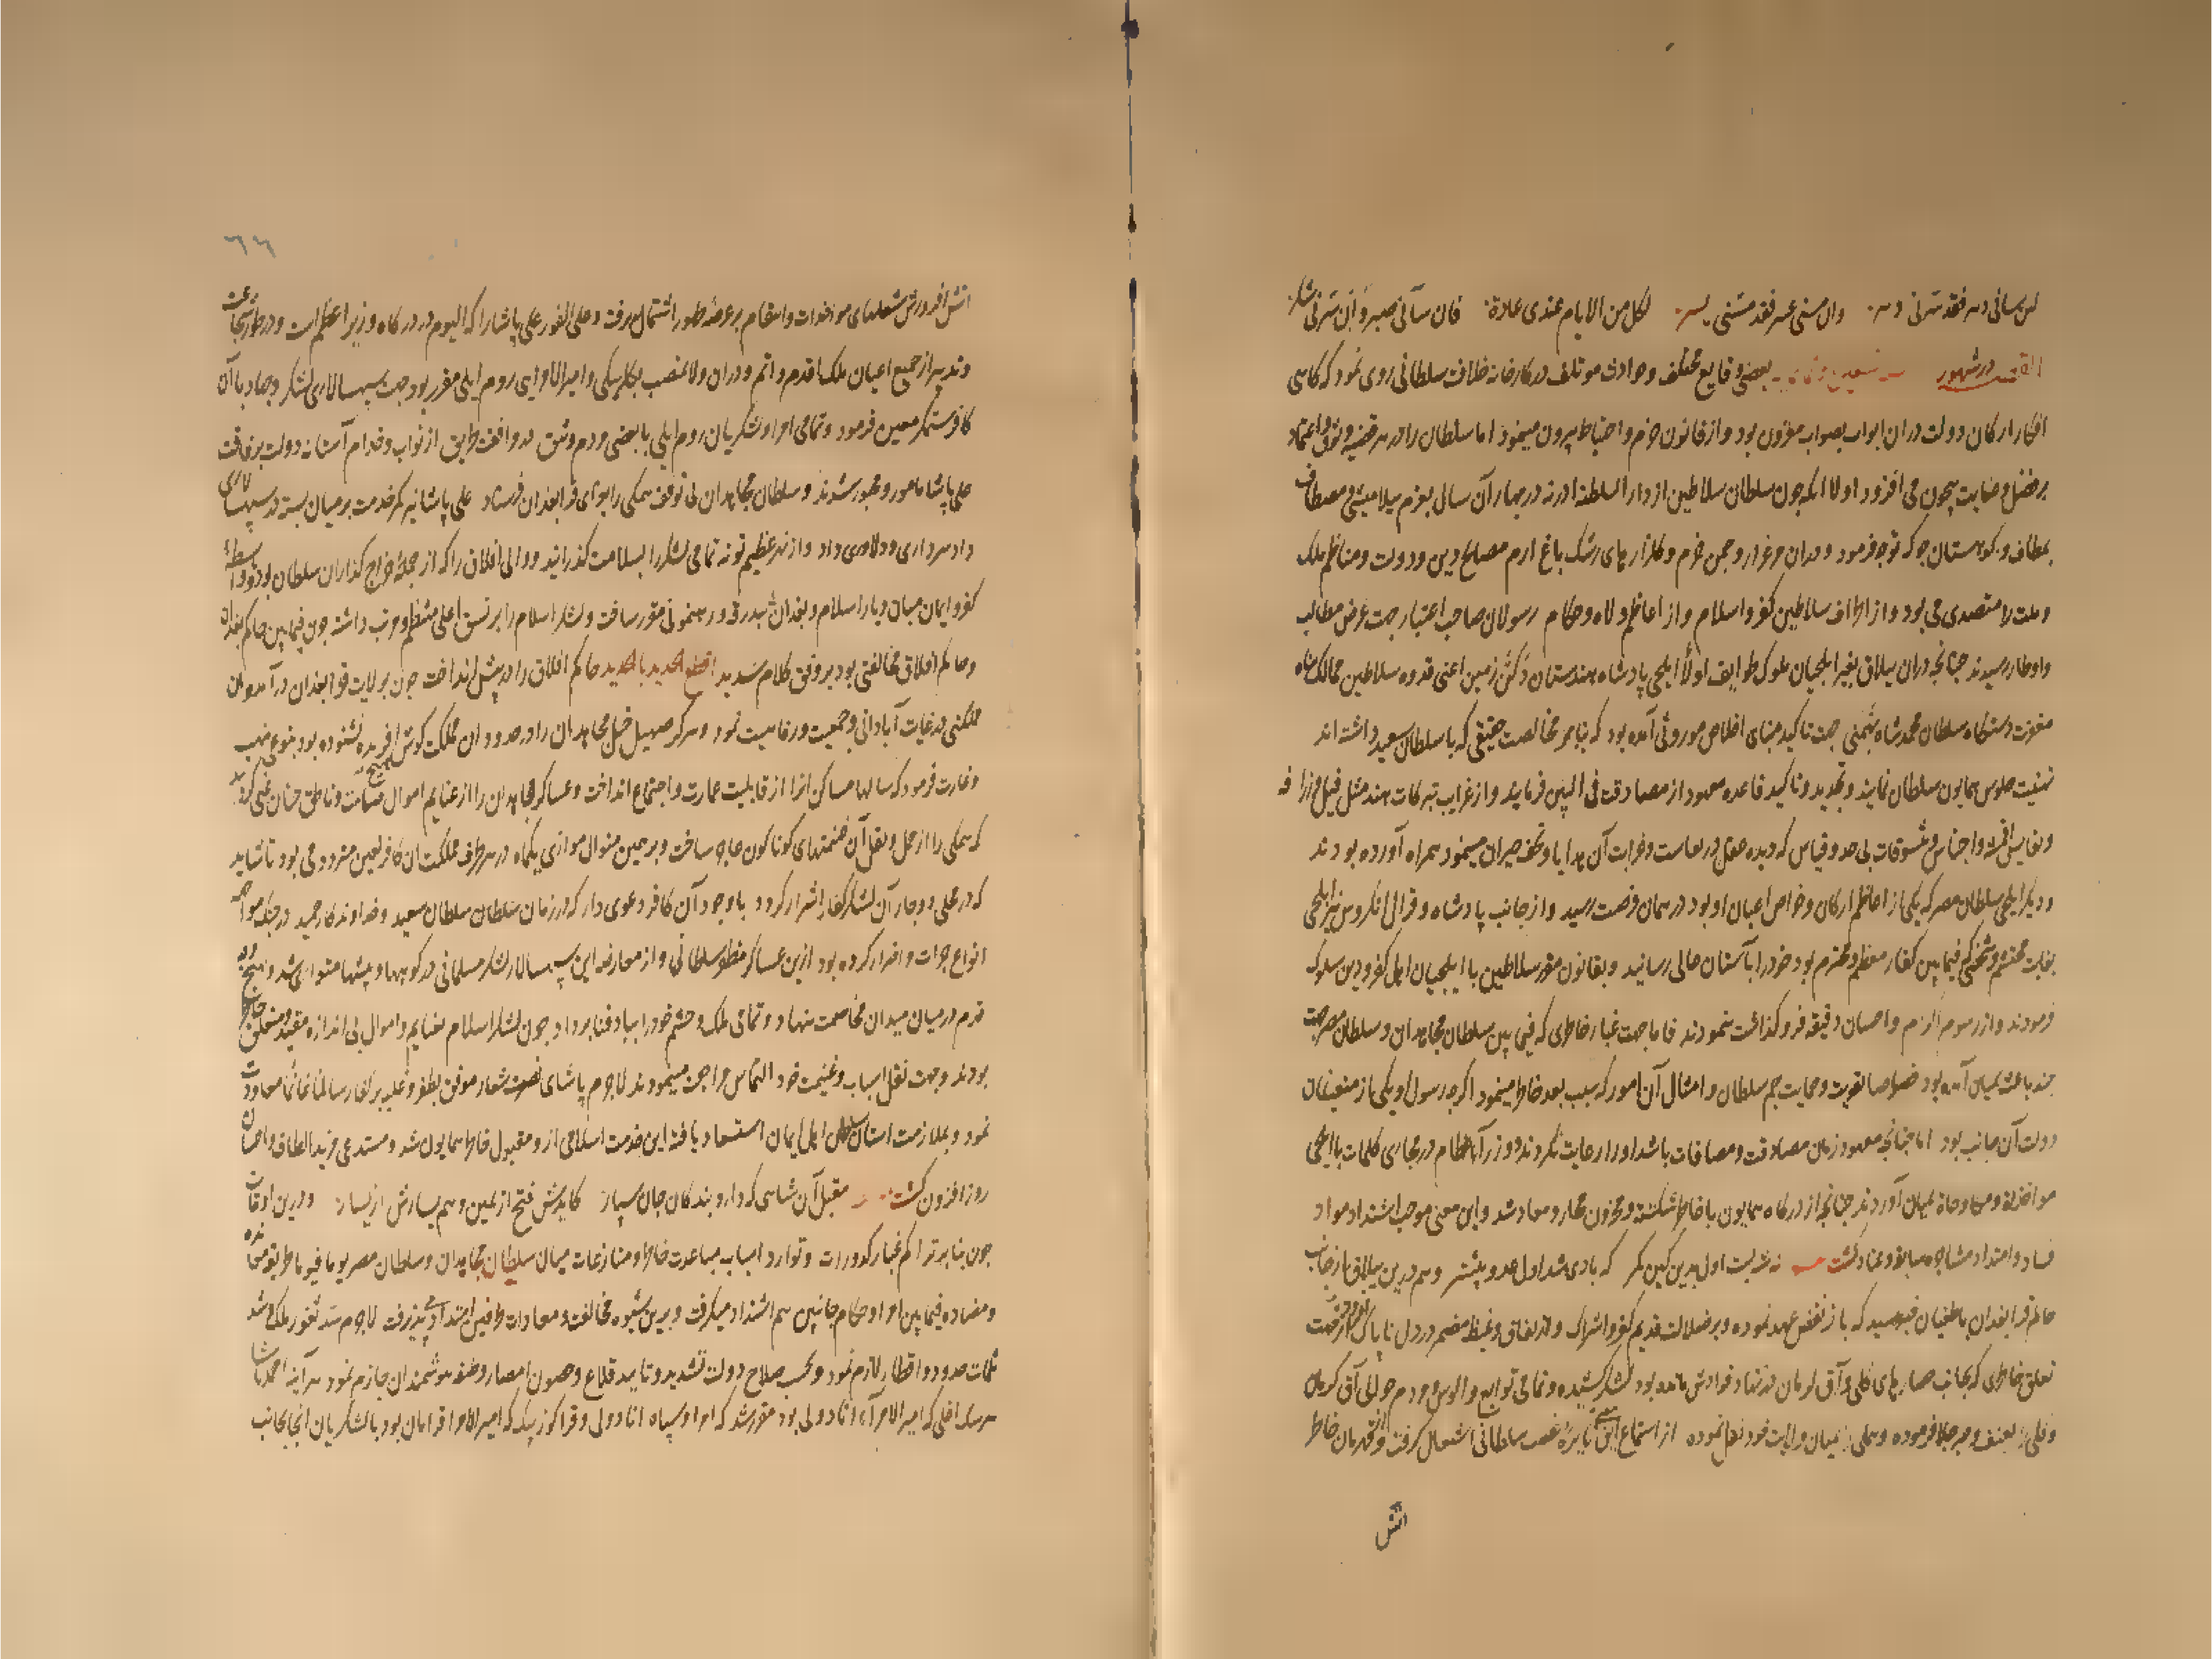 لئن ساءنی دهر فقد سرنی دهر وان مسنی عسر فقد مسنی یسر لکل من الایام عندی عادة فان ساءنی صبر وان سرنی شکر
القصه در شهور بعضی وقایع مختلف و حوادث موتلف در کارخانه خلافت سلطانی روی نمود که کاهی
افکار ارکان دولت دران ابواب بصواب مقرون بود و از قانون حزم و احتیاط بیرون مینمود اما سلطان را در هر قضیه وثوق و اعتماد
بر فضل و عنایت بیچون می افزود اولا انکه چون سلطان سلاطین از دار السلطنه ادرنه در بهار آن سال بعزم ییلامیشی و مصطاف
بمطاف و کوهستان جوکه توجه فرمود و دران مرغزار و چمن خرم و کلزارهای رشک باغ ارم مصالح دین و دولت و مناظم ملک
و ملت را متصدی می بود و از اطراف سلاطین کفر و اسلام و از اعاظم ولاه و حکام رسولان صاحب اعتبار جهت عرض مطالب
و اوطار رسیدند چنانچه دران ییلاق بغیر ایلچیان ملوک طوایف اولا ایلچی پادشاه هندستان دکن زمین اعنی قدوه سلاطین ممالک پناه
مغفرت دستکاه سلطان محمد شاه بهمنی جهت تاکید مبنای اخلاص موروثی آمده بود که بنابر مخالصت حقیقی که با سلطان سعید داشته اند
تهنیت جلوس همایون سلطان نمایند و تجدید و تاکید قاعده معهود از مصادقت فی البین فرمایند و از غرایب تبرکات هند مثل فیل و زرافه
و نفایس اقمشه و اجناس و تنسوقات بی حد و قیاس که دیده عقل در نفاست و غرابت آن هدایا و تحف حیران مینمود همراه آورده بودند
و دیکر ایلچی سلطان مصر که یکی از اعاظم ارکان و خواص اعیان او بود در همان فرصت رسید و از جانب پادشاه و قرال انکروس نیز ایلچی
بغایت محتشم و شخصی که فیما بین کفار معظم و محترم بود خود را بآستان عالی رسانید و بقانون مقرر سلاطین با ایلچیان اهل کفر و دین سلوک
فرمودند و از رسوم اکرام و احسان دقیقه فرو کذاشت ننمودند فاما جهت غبار خاطری که فیما بین سلطان مجاهدان و سلطان مصر جهت
چند باعث بمیان آمده بود خصوصا تقویت و حمایت جم سلطان و امثال آن امور که سبب بعد خاطر مینمود اکرچه رسول او یکی از متعینان
دولت آن جانب بود اما چنانچه معهود زمان مصادقت و مصافات باشد او را رعایت نکردند و وزرآء عظام در مجاری کلمات با ایلچی
مواخذه و مکاوحاة بمیان آوردند چنانچه از درکاه همایون با خاطر شکسته و محزون بمحار و معاد شد و این معنی موجب اشتداد مواد
فساد و امتداد مشاجره سابق و عناد کشت نه شربت اول بدین کین کمر که بادی شد اول عدو پیشتر و هم درین ییلاق از جانب
حاکم قرا بغدان باطغیان خبر رسید که باز نقض عهد نموده و بر ضلالت قدیم کفر و اشراک و از نفاق و غیظ مضمر در دل ناپاک خود در فرصت
تعلق خاطری که بجانب حصارهای کلی و آق کرمان در نهاد فوادش مانده بود لشکر کشیده و تمامی توابع و الوس و مردم حوالی آق کرمان
و کلی را بعنف و جبر جلا فرموده و همکی را بمیان ولایت خود نقل نموده از استماع این خبر نایره غضب سلطانی اشتعال کرفت و قهرمان خاطر
اتش
٦٦
اتش افروزش شعلهای مواخذات و انتقام بر عرصه ظهور اشتمال پذیرفت و علی الفور علی پاشا را که الیوم در درکاه وزیر اعظم است و در طور شجاعت
و تدبیر از جمیع اعیان ملک اقدم و اتم و دران ولا بمنصب بکلربیکی و امیر الامراوای روم ایلی مقرر بود جهت سپهسالاری لشکر و جهاد با آن
کافر ستمکر معین فرمود و تمامی امرا و لشکریان روم ایلی با بعضی مردم وثیق در موافقت طریق از نواب و خدام آستانه دولت بر رفاقت
علی پاشا مامور و مجبور شدند و سلطان مجاهدان بی توقف همکی را بر غزای قرا بغدان فرستاد علی پاشا نیز کمر خدمت بر میان بسته در سپهسالاری
داد سرداری و دلاوری داد و از نهر عظیم تونه تمامی لشکر را بسلامت کذرانید و والی افلاق را که از جمله خراج کذاران سلطان بود و واسطه
کفر و ایمان میان دیار اسلام و بغدان ببدرقه و رهنمونی مقرر ساخت و لشکر اسلام را بر نسق اعلی منتظم و مرتب داشته چون فیما بین حاکم بغدان
و حاکم افلاق مخالفتی بود بر وفق کلام سدید اقطع الحدید بالحدید حاکم افلاق را در پیش انداخت چون بولایت قرا بغدان در آمد و آن
مملکتی در غایت آبادانی و جمعیت و رفاهیت نمود و هرکز صهیل خیل مجاهدان را در حدود ان مملکت کوش آفریده نشنوده بود بنوعی نهب
و غارت فرمود که سالها مساکن انرا از قابلیت عمارت و اجتماع انداخت و عساکر مجاهدان را از غنایم اموال صامت و ناطق چنان غنی کردانید
که همکی را از حمل و نقل آن غنیمتهای کوناکون عاجز ساخت و بر همین منوال موازی یکماه در هر طرف مملکت ان کافر لعین متردد می بود تا شاید
که در محلی دوچار آن لشکر کفار اشرار کردد با وجود آن کافر دعوی دار که در زمان سلطان سلطان سعید و خداوندکار حمید در جنک مواجهه
انواع جرات و اقرار کرده بود ازین عساکر منظور سلطانی و از معارضه این سپهسالار لشکر مسلمانی در کوهها و بیشها متواری شد و بهیچ وجه
قدم در میان میدان مخاصمت ننهاد و تمامی ملک و حشم خود را بباد فنا بر داد چون لشکر اسلام بغنایم و اموال بی اندازه مقید و متعلق خاطر
بودند و جهت نقل اسباب و غنیمت خود التماس مراجعت مینمودند لاجرم پاشای نصرت شعار موفق بظفر و غلبه بر کفار سالما غانما معاودت
نمود و بملازمت آستان سلطان اهل ایمان استسعاد یافت این خدمت اسلامی از و مقبول خاطر همایون شد و مستدعی مزید الطاف و احسان
روز افزون کشت مقبل آن شاهی که دارد بندکان جان سپار کایدش فتح از یمین و هم یسارش از یسار و درین اوقات
چون بنابر تراکم غبار کدورات و توارد اسباب مباعدت خاطر و منازعات میان سلطان مجاهدان و سلطان مصر یوما فیوما طریق محاذره
و مضاده فیما بین امرا و حکام جانبین هم اشتداد میکرفت و برین شیوه مخالفت و معادات طرفین امتداد می پذیرفت لاجرم سد ثغور ملکی و شد
ثلمات حدود و اقطار لازم نمود و بحسب صلاح دولت تشدید و تایید قلاع و حصون امصار وظیفه هوشمندان جازم نمود هرآینه احمد پاشا
هرسک اغلی که امیر الامرآء اناد ولی بود مقرر شد که امرا و سپاه اناد ولی و قرا کوز بیک که امیر الامرا قرامان بود با لشکریان انجا بجانب